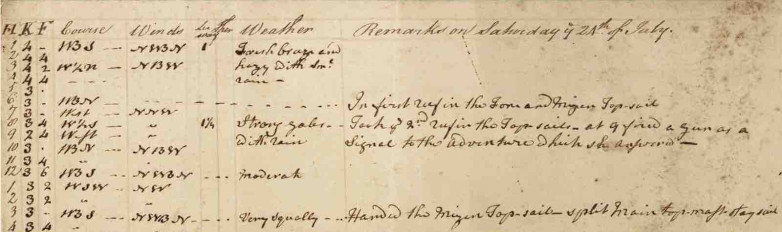 H K F Course Winds Weather Remarks on Saturday ye 24th of July.
1 4 - WBS - NWBN 1° Fresh breeze and
2 4 4
3 4 2 W½N - NBW hazy with
4 4 4 - - rain -
5 3 ·
6 3 - WBN - - In first reef in the Fore and Mizen Top-sail
7 3 - West - NNW
8 3 4 W½S - " 1¼ Strong gales - Took ye 2nd reef in the Top-sails - at 9 fired a gun as a
9 2 4 West - " with rain Signal to the Adventure which she answered -
10 3 - WBN - NBW
11 3 4 "
12 3 6 WBS - NWBN - moderate
1 3 2 WSW - NW
2 3 2 " "
3 3 - WBS - NWBN - Very squally - Handed the Mizen Top-sail - split Main top-mast stay sail
4 3 4 " "